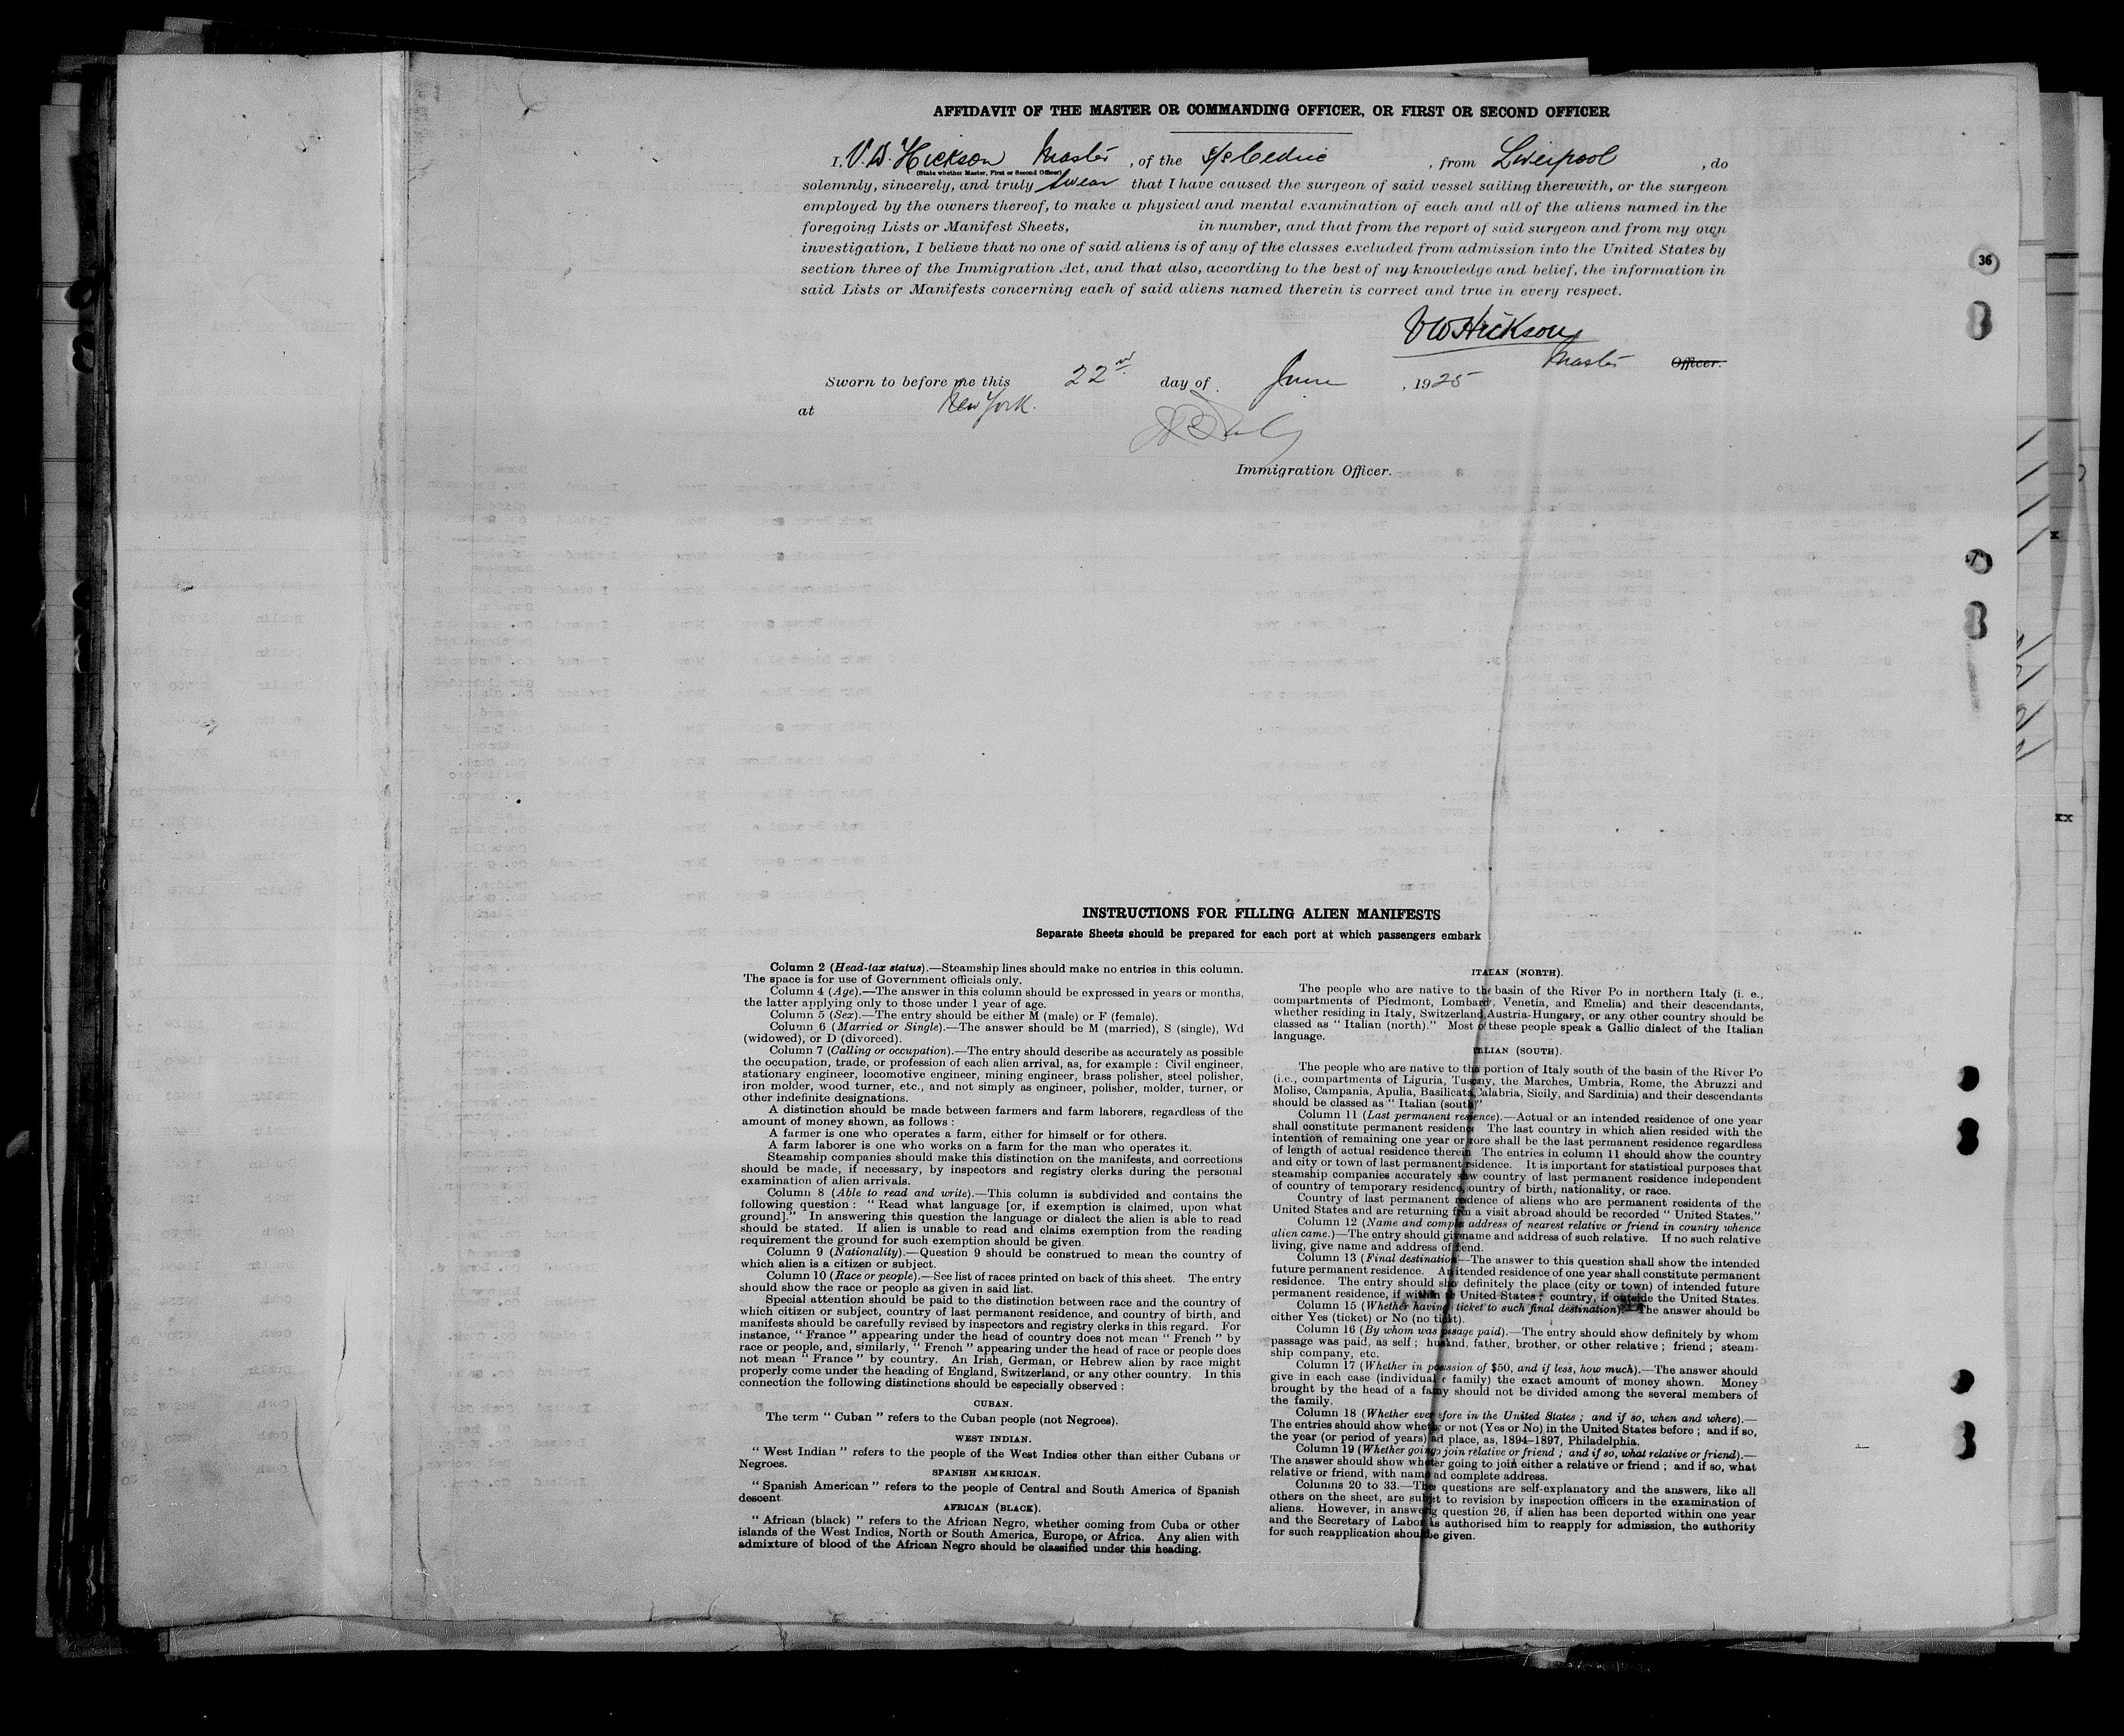 AFFIDAVIT OF THE MASTER OR COMMANDING OFFICER, OR FIRST OR SECOND OFFICER
I, V. W. Hickson Master, of the S/S Cedric, from Liverpool, do
(State whether Master, First or Second Officer)
solemnly, sincerely, and truly swear that I have caused the surgeon of said vessel sailing therewith, or the surgeon
employed by the owners thereof, to make a physical and mental examination of each and all of the aliens named in the
foregoing Lists or Manifest Sheets, in number, and that from the report of said surgeon and from my own
investigation, I believe that no one of said aliens is of any of the classes excluded from admission into the United States by
section three of the Immigration Act, and that also, according to the best of my knowledge and belief, the information in
said Lists or Manifests concerning each of said aliens named therein is correct and true in every respect.
36
V W Hickson
Master Officer.
Sworn to before me this 22nd day of June, 1925
at New York.
Immigration Officer.
x
xx
INSTRUCTIONS FOR FILLING ALIEN MANIFESTS
Separate Sheets should be prepared for each port at which passengers embark
Column 2 (Head-tax status).—Steamship lines should make no entries in this column.
The space is for use of Government officials only.
Column 4 (Age).—The answer in this column should be expressed in years or months,
the latter applying only to those under 1 year of age.
Column 5 (Sex).—The entry should be either M (male) or F (female).
Column 6 (Married or Single).—The answer should be M (married), S (single), Wd
(widowed), or D (divorced).
Column 7 (Calling or occupation).—The entry should describe as accurately as possible
the occupation, trade, or profession of each alien arrival, as, for example : Civil engineer,
stationary engineer, locomotive engineer, mining engineer, brass polisher, steel polisher,
iron molder, wood turner, etc., and not simply as engineer, polisher, molder, turner, or
other indefinite designations.
A distinction should be made between farmers and farm laborers, regardless of the
amount of money shown, as follows :
A farmer is one who operates a farm, either for himself or for others.
A farm laborer is one who works on a farm for the man who operates it.
Steamship companies should make this distinction on the manifests, and corrections
should be made, if necessary, by inspectors and registry clerks during the personal
examination of alien arrivals.
Column 8 (Able to read and write).—This column is subdivided and contains the
following question : " Read what language [or, if exemption is claimed, upon what
ground]." In answering this question the language or dialect the alien is able to read
should be stated. If alien is unable to read and claims exemption from the reading
requirement the ground for such exemption should be given.
Column 9 (Nationality).—Question 9 should be construed to mean the country of
which alien is a citizen or subject.
Column 10 (Race or people).—See list of races printed on back of this sheet. The entry
should show the race or people as given in said list.
Special attention should be paid to the distinction between race and the country of
which citizen or subject, country of last permanent residence, and country of birth, and
manifests should be carefully revised by inspectors and registry clerks in this regard. For
instance, " France " appearing under the head of country does not mean " French " by
race or people, and, similarly, " French " appearing under the head of race or people does
not mean " France " by country. An Irish, German, or Hebrew alien by race might
properly come under the heading of England, Switzerland, or any other country. In this
connection the following distinctions should be especially observed :
CUBAN.
The term " Cuban " refers to the Cuban people (not Negroes).
WEST INDIAN.
" West Indian " refers to the people of the West Indies other than either Cubans or
Negroes.
SPANISH AMERICAN.
" Spanish American " refers to the people of Central and South America of Spanish
descent
AFRICAN (BLACK).
" African (black) " refers to the African Negro, whether coming from Cuba or other
islands of the West Indies, North or South America, Europe, or Africa. Any alien with
admixture of blood of the African Negro should be classified under this heading.
ITALIAN (NORTH).
The people who are native to the basin of the River Po in northern Italy (i. e.,
compartments of Piedmont, Lombardy, Venetia, and Emelia) and their descendants,
whether residing in Italy, Switzerland, Austria-Hungary, or any other country should be
classed as " Italian (north)." Most of these people speak a Gallic dialect of the Italian
language.
ITALIAN (SOUTH).
The people who are native to the portion of Italy south of the basin of the River Po
(i.e., compartments of Liguria, Tuscany, the Marches, Umbria, Rome, the Abruzzi and
Molise, Campania, Apulia, Basilicata, Calabria, Sicily, and Sardinia) and their descendants
should be classed as " Italian (south)."
Column 11 (Last permanent residence).—Actual or an intended residence of one year
shall constitute permanent residence. The last country in which alien resided with the
intention of remaining one year or more shall be the last permanent residence regardless
of length of actual residence therein. The entries in column 11 should show the country
and city or town of last permanent residence. It is important for statistical purposes that
steamship companies accurately show country of last permanent residence independent
of country of temporary residence, country of birth, nationality, or race.
Country of last permanent residence of aliens who are permanent residents of the
United States and are returning from a visit abroad should be recorded " United States."
Column 12 (Name and complete address of nearest relative or friend in country whence
alien came.)—The entry should give name and address of such relative. If no such relative
living, give name and address of friend.
Column 13 (Final destination).—The answer to this question shall show the intended
future permanent residence. An intended residence of one year shall constitute permanent
residence. The entry should show definitely the place (city or town) of intended future
permanent residence, if within the United States ; country, if outside the United States.
Column 15 (Whether having ticket to such final destination).—The answer should be
either Yes (ticket) or No (no ticket).
Column 16 (By whom was passage paid).—The entry should show definitely by whom
passage was paid, as self ; husband, father, brother, or other relative ; friend ; steam-
ship company, etc.
Column 17 (Whether in possession of $50, and if less, how much).—The answer should
give in each case (individual or family) the exact amount of money shown. Money
brought by the head of a family should not be divided among the several members of
the family.
Column 18 (Whether ever before in the United States ; and if so, when and where).—
The entries should show whether or not (Yes or No) in the United States before ; and if so,
the year (or period of years) and place, as, 1894-1897, Philadelphia.
Column 19 (Whether going to join relative or friend ; and if so, what relative or friend).—
The answer should show whether going to join either a relative or friend ; and if so, what
relative or friend, with name and complete address.
Columns 20 to 33.—These questions are self-explanatory and the answers, like all
others on the sheet, are subject to revision by inspection officers in the examination of
aliens. However, in answering question 26, if alien has been deported within one year
and the Secretary of Labor has authorised him to reapply for admission, the authority
for such reapplication should be given.